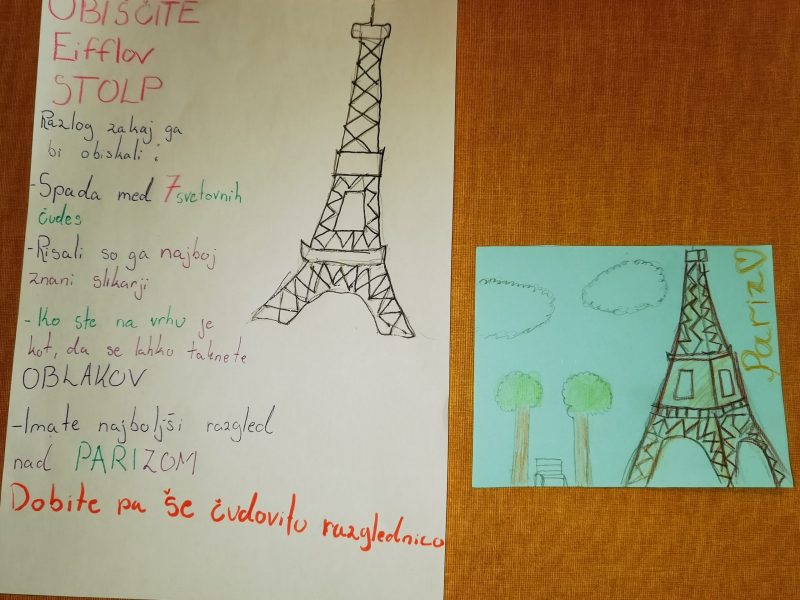 OBIŠČITE
Eifflov
STOLP
Razlog zakaj ga
bi obiskali :
-Spada med 7 svetovnih
čudes
-Risali so ga najbolj
znani slikarji
-Ko ste na vrhu je
kot, da se lahko taknete
OBLAKOV
-Imate najboljši razgled
nad PARIZOM
Dobite pa še čudovito razglednico
Pariz